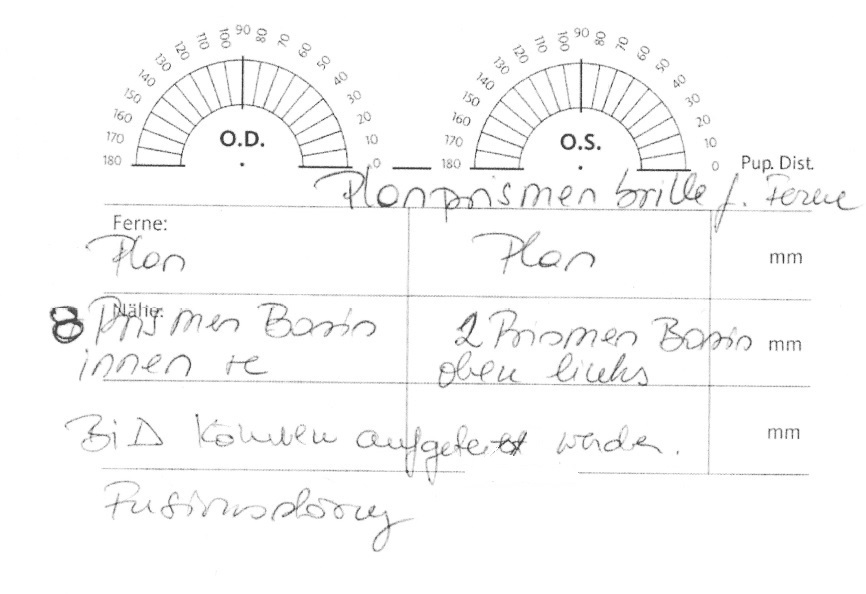 90 90
100 80 100 80
110 70 110 70
120 60 120 60
130 50 130 50
140 40 140 40
150 30 150 30
160 20 160 20
170 O.D. 10 170 O.S. 10
180 0 180 0 Pup. Dist.
Planprismenbrille f. Ferne
Ferne:
Plan Plan mm
Nähe:
8 Prismen Basis 2 Prismen Basis mm
innen re oben links
BiD können aufgeteilt werden. mm